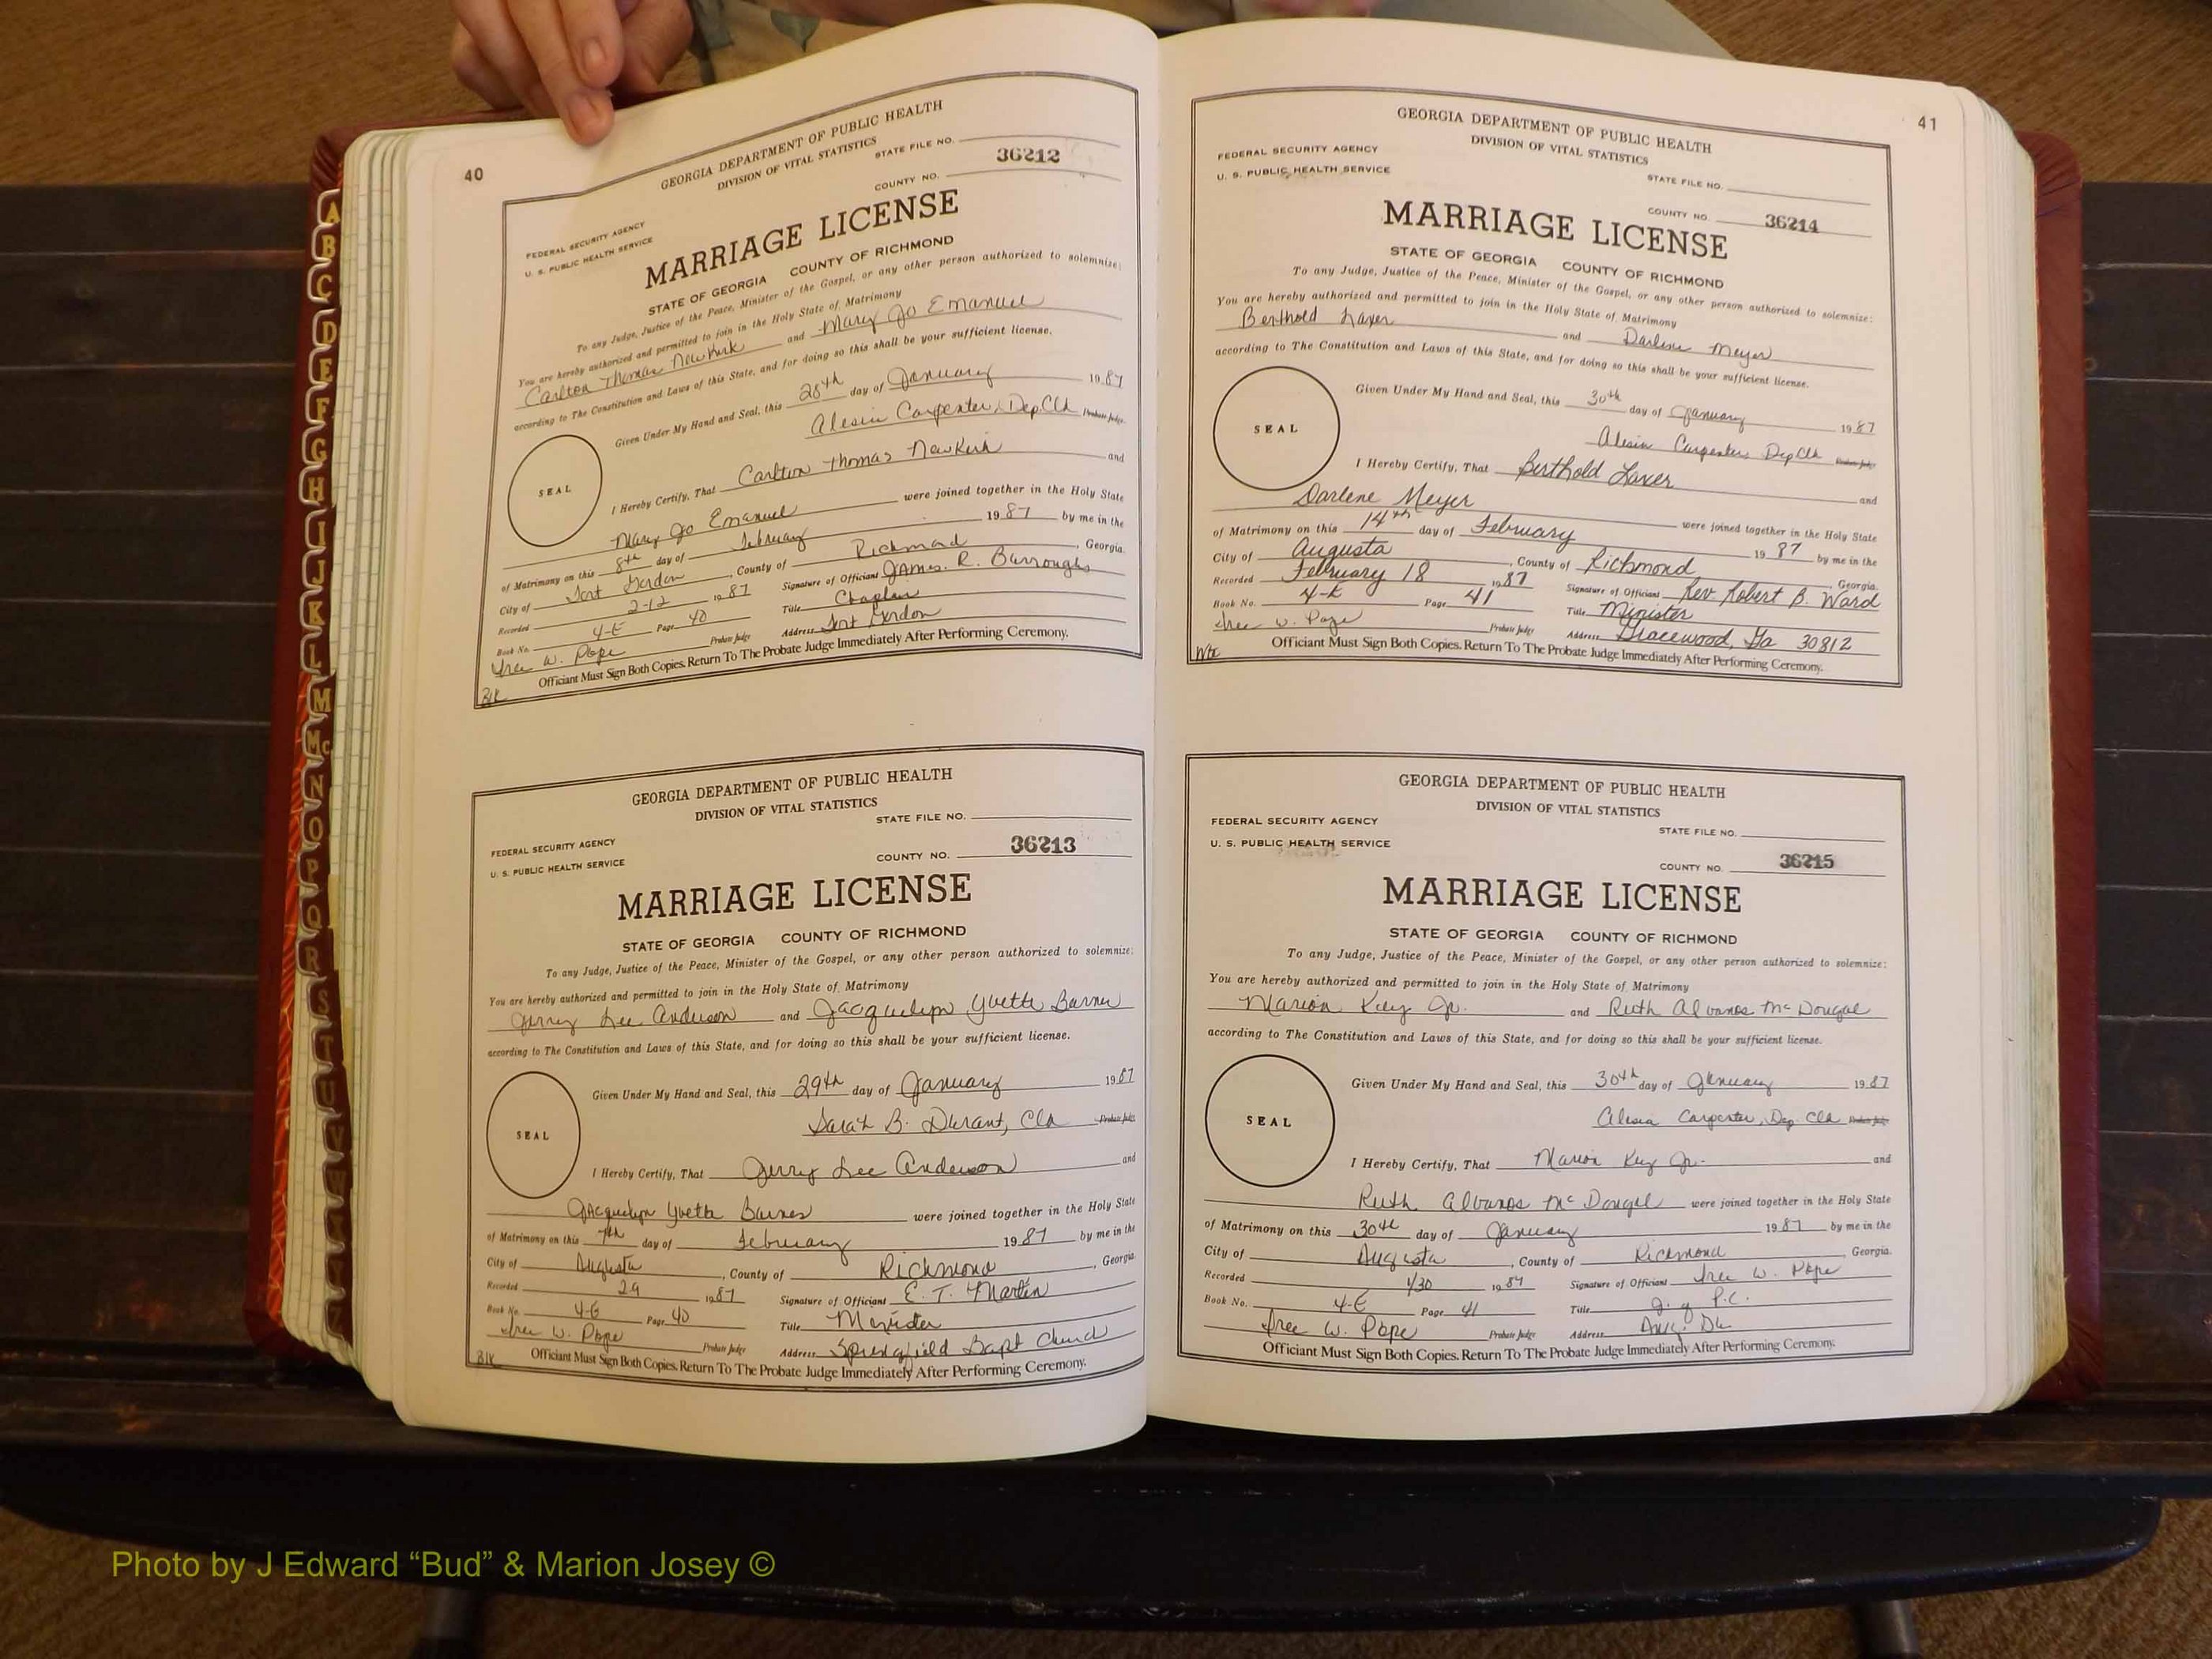 40
GEORGIA DEPARTMENT OF PUBLIC HEALTH
DIVISION OF VITAL STATISTICS
STATE FILE NO.
36212
COUNTY NO.
FEDERAL SECURITY AGENCY
U. S. PUBLIC HEALTH SERVICE
MARRIAGE LICENSE
STATE OF GEORGIA COUNTY OF RICHMOND
To any Judge, Justice of the Peace, Minister of the Gospel, or any other person authorized to solemnize:
You are hereby authorized and permitted to join in the Holy State of Matrimony
Carlton Thomas Newkirk and Mary Jo Emanuel
according to The Constitution and Laws of this State, and for doing so this shall be your sufficient license.
Given Under My Hand and Seal, this 28th day of January 1987
Alesia Carpenter, Dep Clk Probate Judge
SEAL
I Hereby Certify, That Carlton Thomas Newkirk and
Mary Jo Emanuel were joined together in the Holy State
of Matrimony on this 8th day of February 1987 by me in the
City of Fort Gordon, County of Richmond, Georgia.
Recorded 2-12 1987 Signature of Officiant James. R. Burroughs
Book No. 4-E Page 40 Title Chaplain
Iree W. Pope Probate Judge Address Fort Gordon
Officiant Must Sign Both Copies. Return To The Probate Judge Immediately After Performing Ceremony.
Blk
GEORGIA DEPARTMENT OF PUBLIC HEALTH
DIVISION OF VITAL STATISTICS
STATE FILE NO.
FEDERAL SECURITY AGENCY
U. S. PUBLIC HEALTH SERVICE
COUNTY NO. 36213
MARRIAGE LICENSE
STATE OF GEORGIA COUNTY OF RICHMOND
To any Judge, Justice of the Peace, Minister of the Gospel, or any other person authorized to solemnize:
You are hereby authorized and permitted to join in the Holy State of Matrimony
Jerry Lee Anderson and Jacquelyn Yvette Barnes
according to The Constitution and Laws of this State, and for doing so this shall be your sufficient license.
Given Under My Hand and Seal, this 29th day of January 1987
Sarah B. Durant, Clk Probate Judge
SEAL
I Hereby Certify, That Jerry Lee Anderson and
Jacquelyn Yvette Barnes were joined together in the Holy State
of Matrimony on this 7th day of February 1987 by me in the
City of Augusta, County of Richmond, Georgia.
Recorded 29 1987 Signature of Officiant E. T. Martin
Book No. 4-E Page 40 Title Minister
Iree W. Pope Probate Judge Address Springfield Bapt Church
Blk Officiant Must Sign Both Copies. Return To The Probate Judge Immediately After Performing Ceremony.
41
GEORGIA DEPARTMENT OF PUBLIC HEALTH
DIVISION OF VITAL STATISTICS
FEDERAL SECURITY AGENCY
U. S. PUBLIC HEALTH SERVICE
STATE FILE NO.
COUNTY NO. 36214
MARRIAGE LICENSE
STATE OF GEORGIA COUNTY OF RICHMOND
To any Judge, Justice of the Peace, Minister of the Gospel, or any other person authorized to solemnize:
You are hereby authorized and permitted to join in the Holy State of Matrimony
Berthold Laxer and Darlene Meyer
according to The Constitution and Laws of this State, and for doing so this shall be your sufficient license.
Given Under My Hand and Seal, this 30th day of January 1987
SEAL
Alesia Carpenter, Dep Clk Probate Judge
I Hereby Certify, That Berthold Laxer and
Darlene Meyer were joined together in the Holy State
of Matrimony on this 14th day of February 1987 by me in the
City of Augusta, County of Richmond, Georgia.
Recorded February 18 1987 Signature of Officiant Rev. Robert B. Ward
Book No. 4-E Page 41 Title Minister
Iree W. Pope Probate Judge Address Gracewood, Ga 30812
Officiant Must Sign Both Copies. Return To The Probate Judge Immediately After Performing Ceremony.
GEORGIA DEPARTMENT OF PUBLIC HEALTH
DIVISION OF VITAL STATISTICS
FEDERAL SECURITY AGENCY
STATE FILE NO.
U. S. PUBLIC HEALTH SERVICE
COUNTY NO. 36215
MARRIAGE LICENSE
STATE OF GEORGIA COUNTY OF RICHMOND
To any Judge, Justice of the Peace, Minister of the Gospel, or any other person authorized to solemnize:
You are hereby authorized and permitted to join in the Holy State of Matrimony
Marion Key Jr. and Ruth Alvanos McDougal
according to The Constitution and Laws of this State, and for doing so this shall be your sufficient license.
Given Under My Hand and Seal, this 30th day of January 1987
Alesia Carpenter, Dep. Clk Probate Judge
SEAL
I Hereby Certify, That Marion Key Jr. and
Ruth Alvanos McDougal were joined together in the Holy State
of Matrimony on this 30th day of January 1987 by me in the
City of Augusta, County of Richmond, Georgia.
Recorded 1/30 1987 Signature of Officiant Iree W. Pope
Book No. 4-E Page 41 Title J. of P.C.
Iree W. Pope Probate Judge Address Aug. Ga
Officiant Must Sign Both Copies. Return To The Probate Judge Immediately After Performing Ceremony.
A
B
C
D
E
F
G
H
I
J
K
L
M
Mc
N
O
P
Q
R
S
T
U
V
W
Photo by J Edward “Bud” & Marion Josey ©